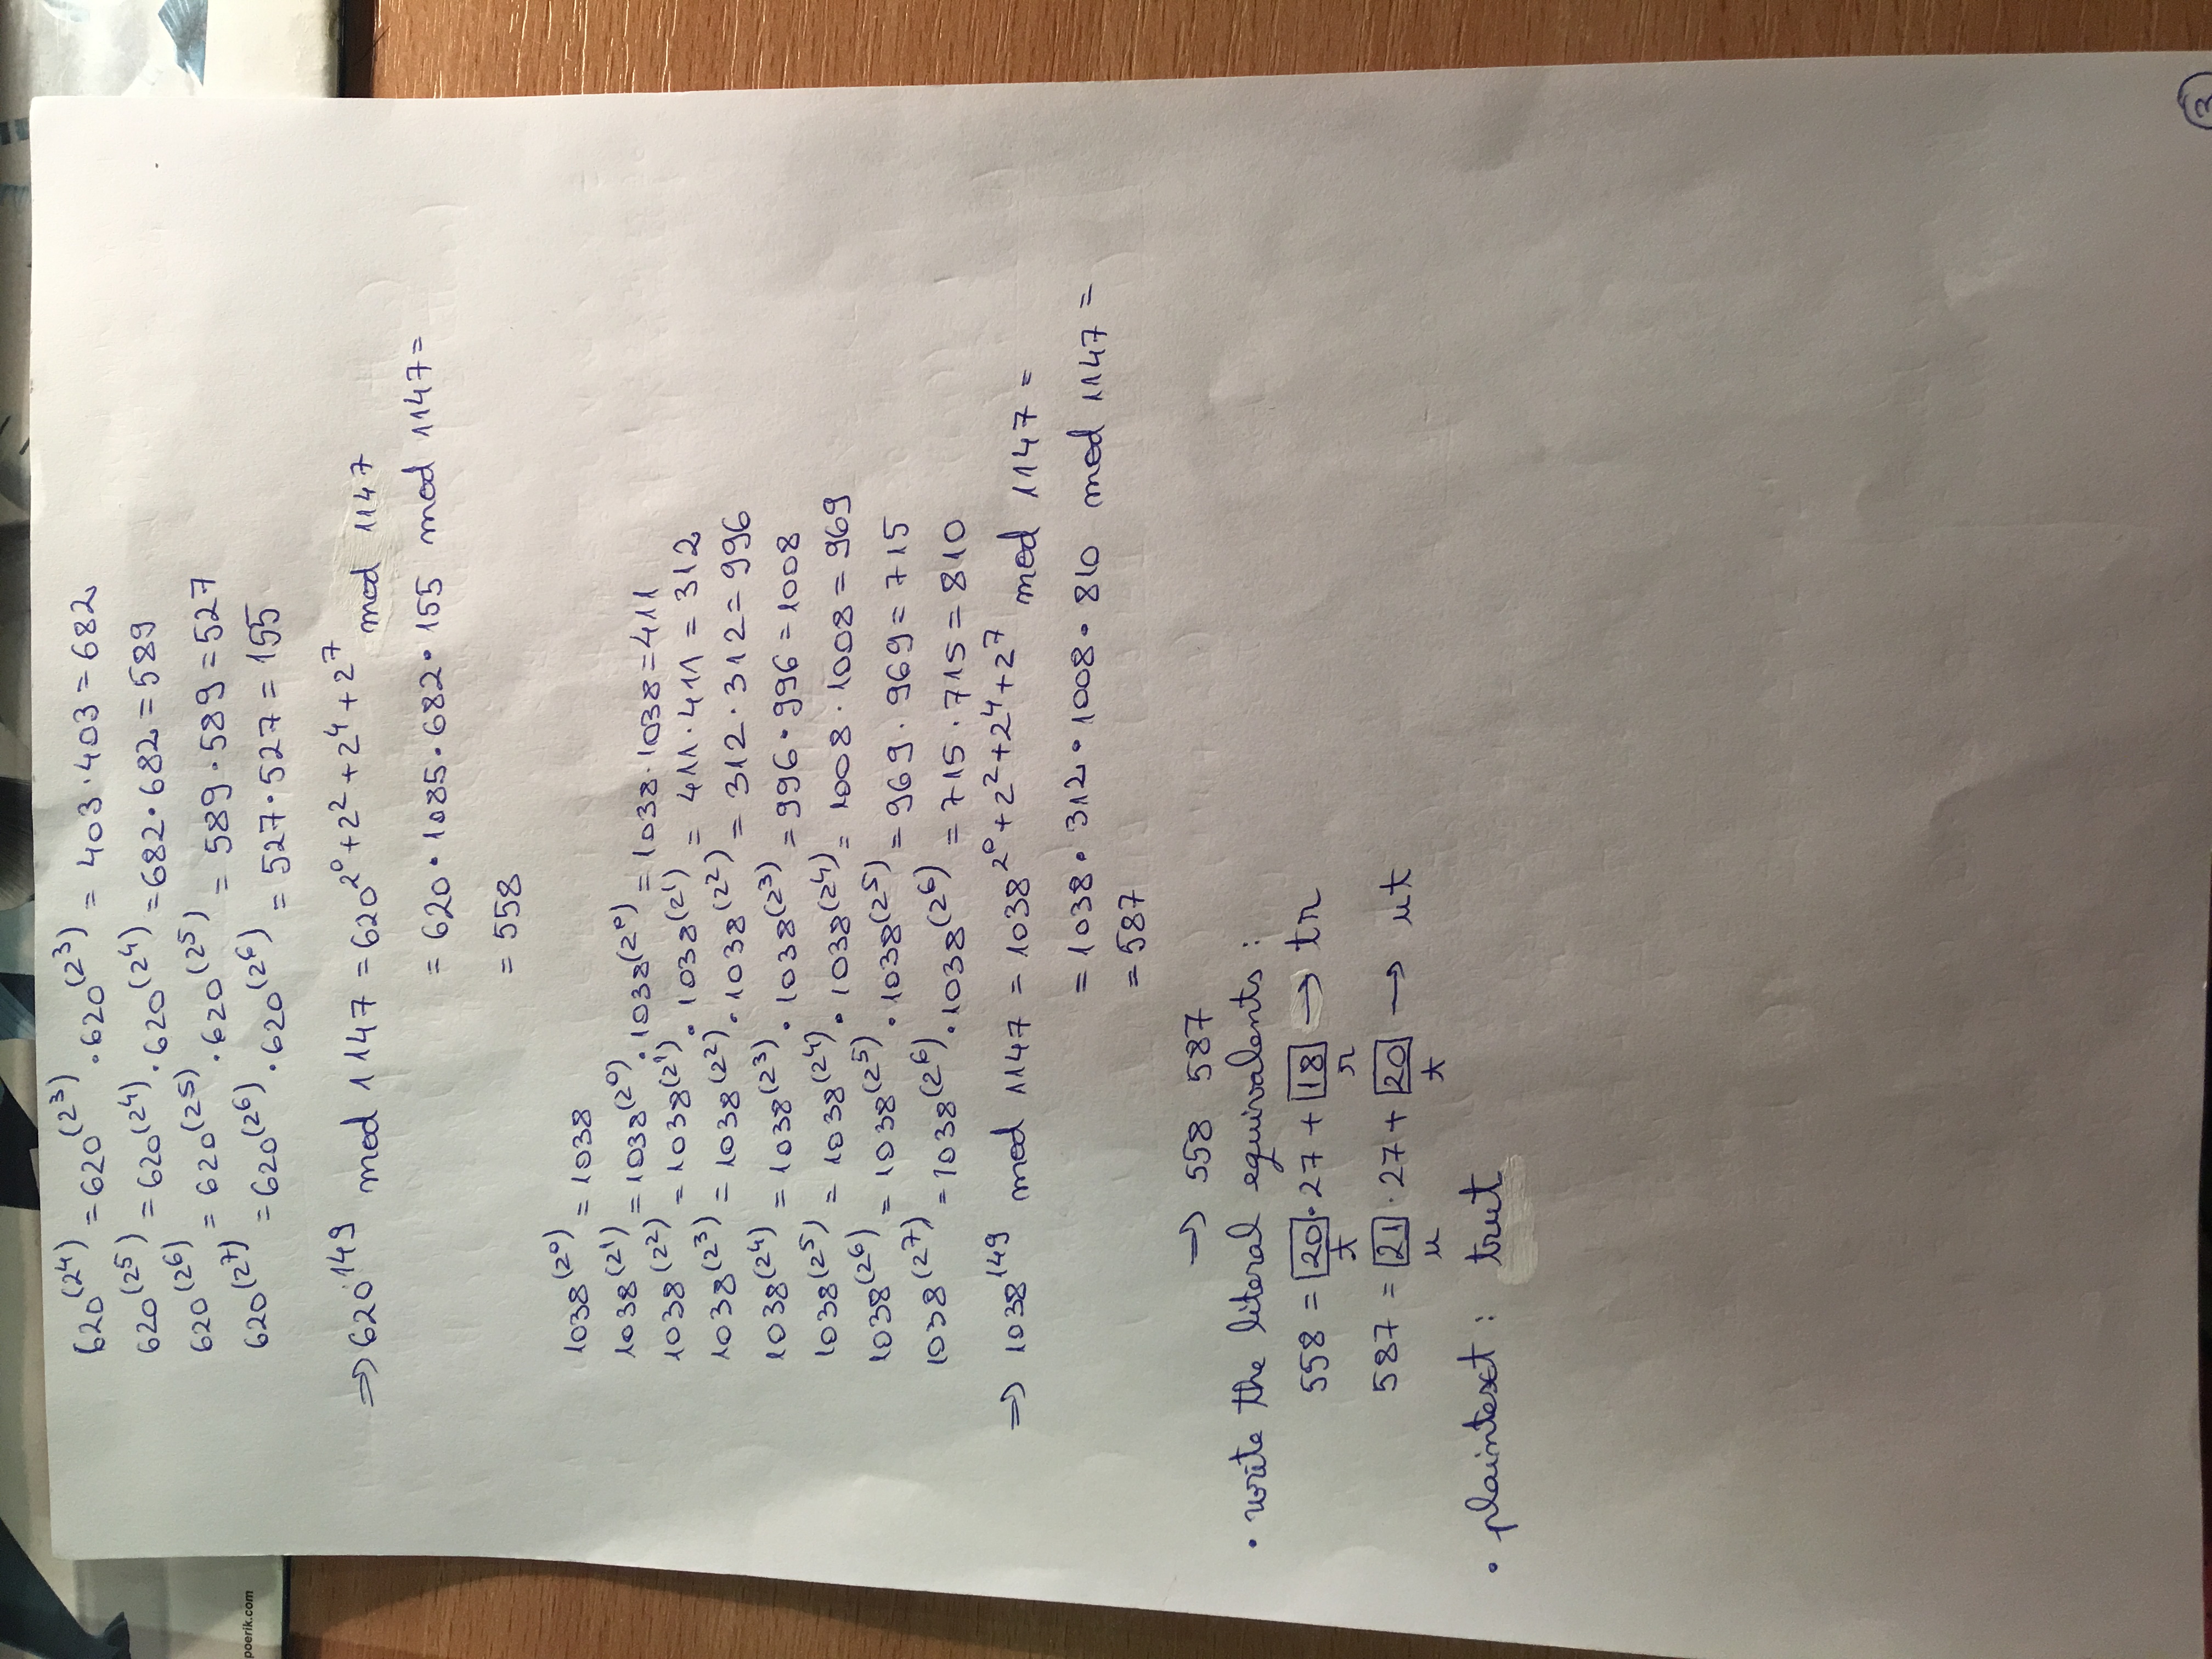 620^(2^4) = 620^(2^3) · 620^(2^3) = 403 · 403 = 682
620^(2^5) = 620^(2^4) · 620^(2^4) = 682 · 682 = 589
620^(2^6) = 620^(2^5) · 620^(2^5) = 589 · 589 = 527
poerik.com
620^(2^7) = 620^(2^6) · 620^(2^6) = 527 · 527 = 155
⇒ 620^149 mod 1147 = 620^(2^0 + 2^2 + 2^4 + 2^7) mod 1147
= 620 · 1085 · 682 · 155 mod 1147 =
= 558
1038^(2^0) = 1038
1038^(2^1) = 1038^(2^0) · 1038^(2^0) = 1038 · 1038 = 411
1038^(2^2) = 1038^(2^1) · 1038^(2^1) = 411 · 411 = 312
1038^(2^3) = 1038^(2^2) · 1038^(2^2) = 312 · 312 = 996
1038^(2^4) = 1038^(2^3) · 1038^(2^3) = 996 · 996 = 1008
1038^(2^5) = 1038^(2^4) · 1038^(2^4) = 1008 · 1008 = 969
1038^(2^6) = 1038^(2^5) · 1038^(2^5) = 969 · 969 = 715
1038^(2^7) = 1038^(2^6) · 1038^(2^6) = 715 · 715 = 810
⇒ 1038^149 mod 1147 = 1038^(2^0 + 2^2 + 2^4 + 2^7) mod 1147 =
= 1038 · 312 · 1008 · 810 mod 1147 =
= 587
⇒ 558 587
• write the literal equivalents :
558 = 20 · 27 + 18 → tr
t r
587 = 21 · 27 + 20 → ut
u t
• plaintext : trut
3